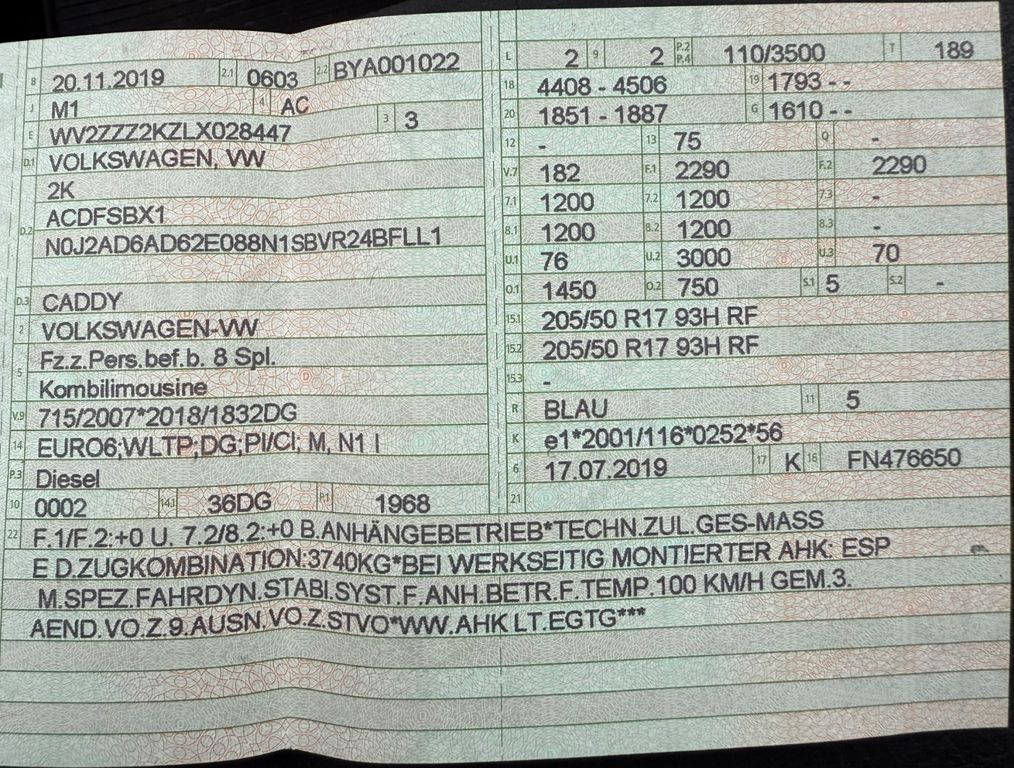 B 20.11.2019 2.1 0603 2.2 BYA001022
J M1 4 AC
E WV2ZZZ2KZLX028447 3 3
D.1 VOLKSWAGEN, VW
2K
ACDFSBX1
D.2 N0J2AD6AD62E088N1SBVR24BFLL1
D.3 CADDY
2 VOLKSWAGEN-VW
5 Fz.z.Pers.bef.b. 8 Spl.
Kombilimousine
V.9 715/2007*2018/1832DG
14 EURO6;WLTP;DG;PI/CI; M, N1 I
P.3 Diesel
10 0002 14.1 36DG P.1 1968
L 2 9 2 P.2 P.4 110/3500 T 189
18 4408 - 4506 19 1793 - -
20 1851 - 1887 G 1610 - -
12 - 13 75 Q -
V.7 182 F.1 2290 F.2 2290
7.1 1200 7.2 1200 7.3 -
8.1 1200 8.2 1200 8.3 -
U.1 76 U.2 3000 U.3 70
O.1 1450 O.2 750 S.1 5 S.2 -
15.1 205/50 R17 93H RF
15.2 205/50 R17 93H RF
15.3 -
R BLAU 11 5
K e1*2001/116*0252*56
6 17.07.2019 17 K 16 FN476650
21
22 F.1/F.2:+0 U. 7.2/8.2:+0 B.ANHÄNGEBETRIEB*TECHN.ZUL.GES-MASS
E D.ZUGKOMBINATION:3740KG*BEI WERKSEITIG MONTIERTER AHK: ESP
M.SPEZ.FAHRDYN.STABI.SYST.F.ANH.BETR.F.TEMP.100 KM/H GEM.3.
AEND.VO.Z.9.AUSN.VO.Z.STVO*WW.AHK LT.EGTG***